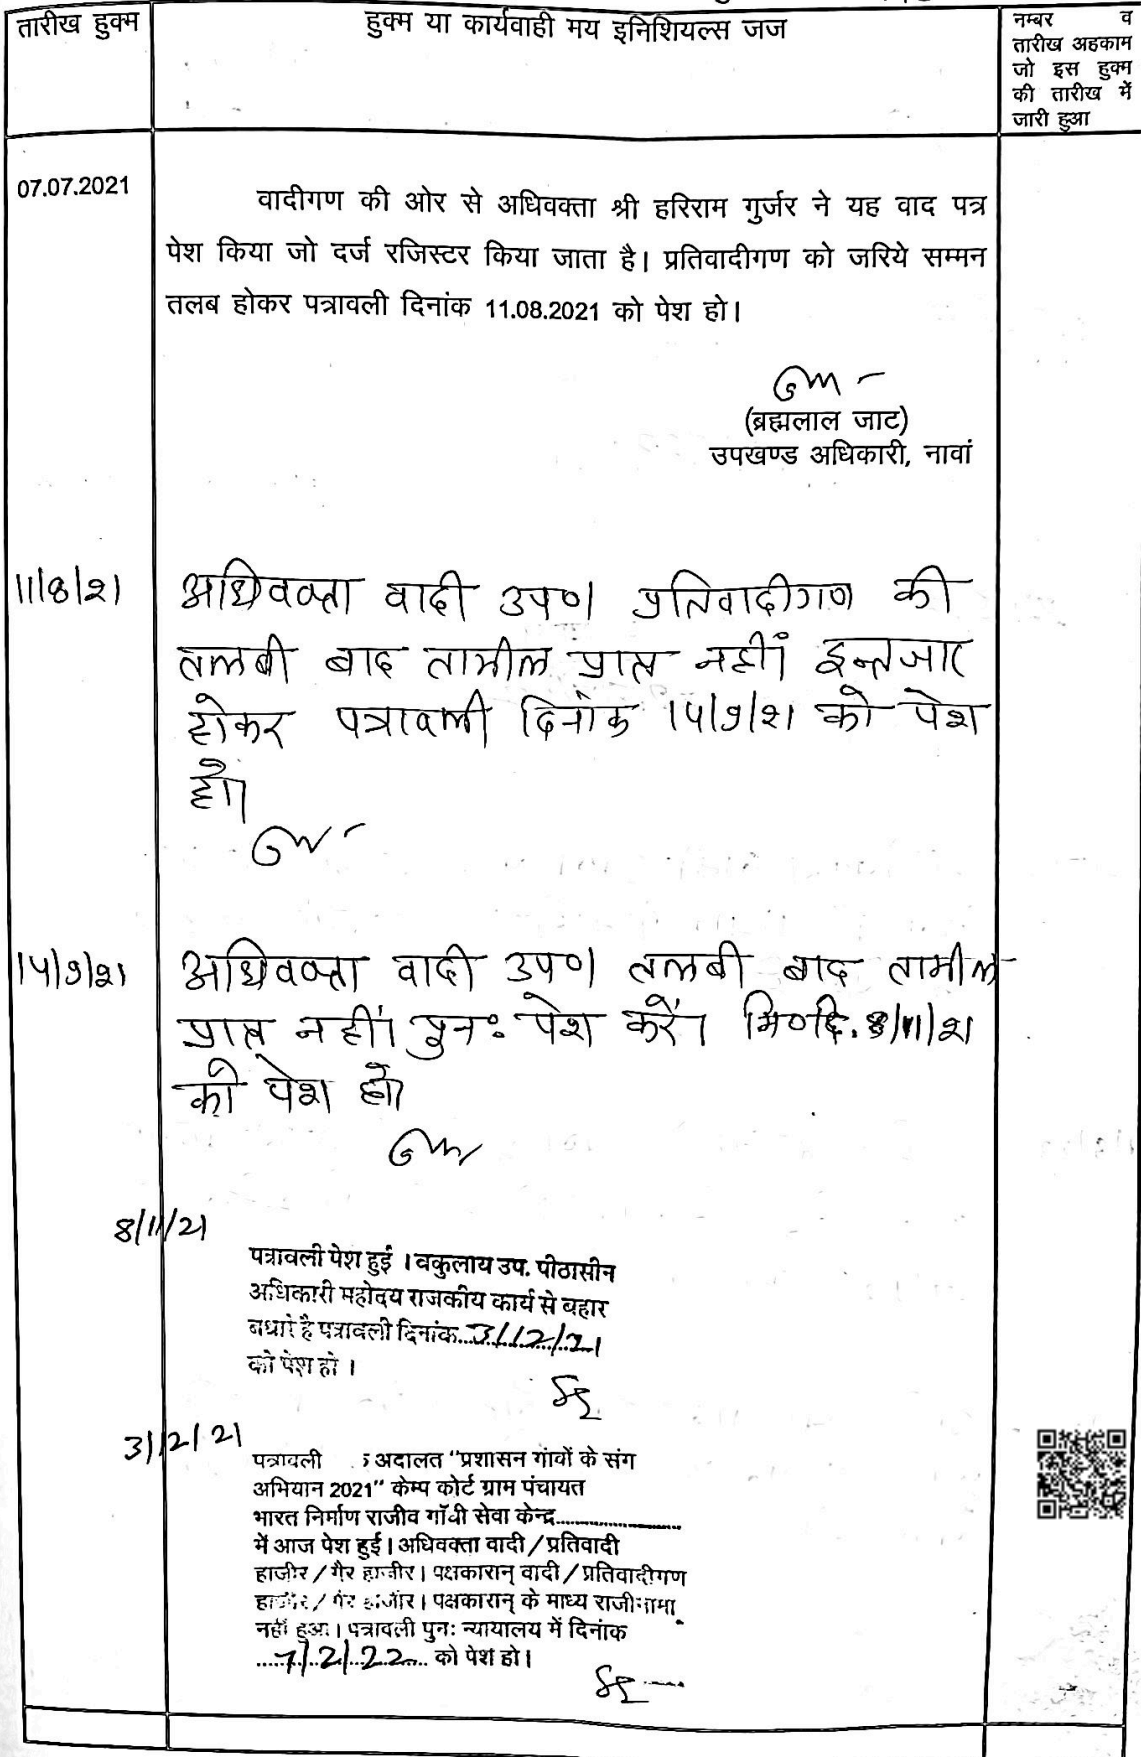 तारीख हुक्म
हुक्म या कार्यवाही मय इनिशियल्स जज
नम्बर व
तारीख अहकाम
जो इस हुक्म
की तारीख में
जारी हुआ
07.07.2021
वादीगण की ओर से अधिवक्ता श्री हरिराम गुर्जर ने यह वाद पत्र
पेश किया जो दर्ज रजिस्टर किया जाता है। प्रतिवादीगण को जरिये सम्मन
तलब होकर पत्रावली दिनांक 11.08.2021 को पेश हो।
(ब्रह्मलाल जाट)
उपखण्ड अधिकारी, नावां
11/8/21
अधिवक्ता वादी उप०। प्रतिवादीगण की
तलबी बाद तामील प्राप्त नहीं। इन्तजार
होकर पत्रावली दिनांक 14/9/21 को पेश
हो।
14/9/21
अधिवक्ता वादी उप०। तलबी बाद तामील
प्राप्त नहीं। पुनः पेश करें। मि०दि. 8/11/21
को पेश हो।
8/11/21
पत्रावली पेश हुई । वकुलाय उप. पीठासीन
अधिकारी महोदय राजकीय कार्य से बहार
बधारे है पत्रावली दिनांक...3/12/21
को पेश हो ।
3/12/21
पत्रावली अदालत "प्रशासन गांवों के संग
अभियान 2021" केम्प कोर्ट ग्राम पंचायत
भारत निर्माण राजीव गाँधी सेवा केन्द्र....................
में आज पेश हुई। अधिवक्ता वादी / प्रतिवादी
हाजीर / गैर हाजीर। पक्षकारान् वादी / प्रतिवादीगण
हाजीर / गैर हाजीर। पक्षकारान् के माध्य राजीनामा
नहीं हुआ। पत्रावली पुनः न्यायालय में दिनांक
....7/2/22.... को पेश हो।